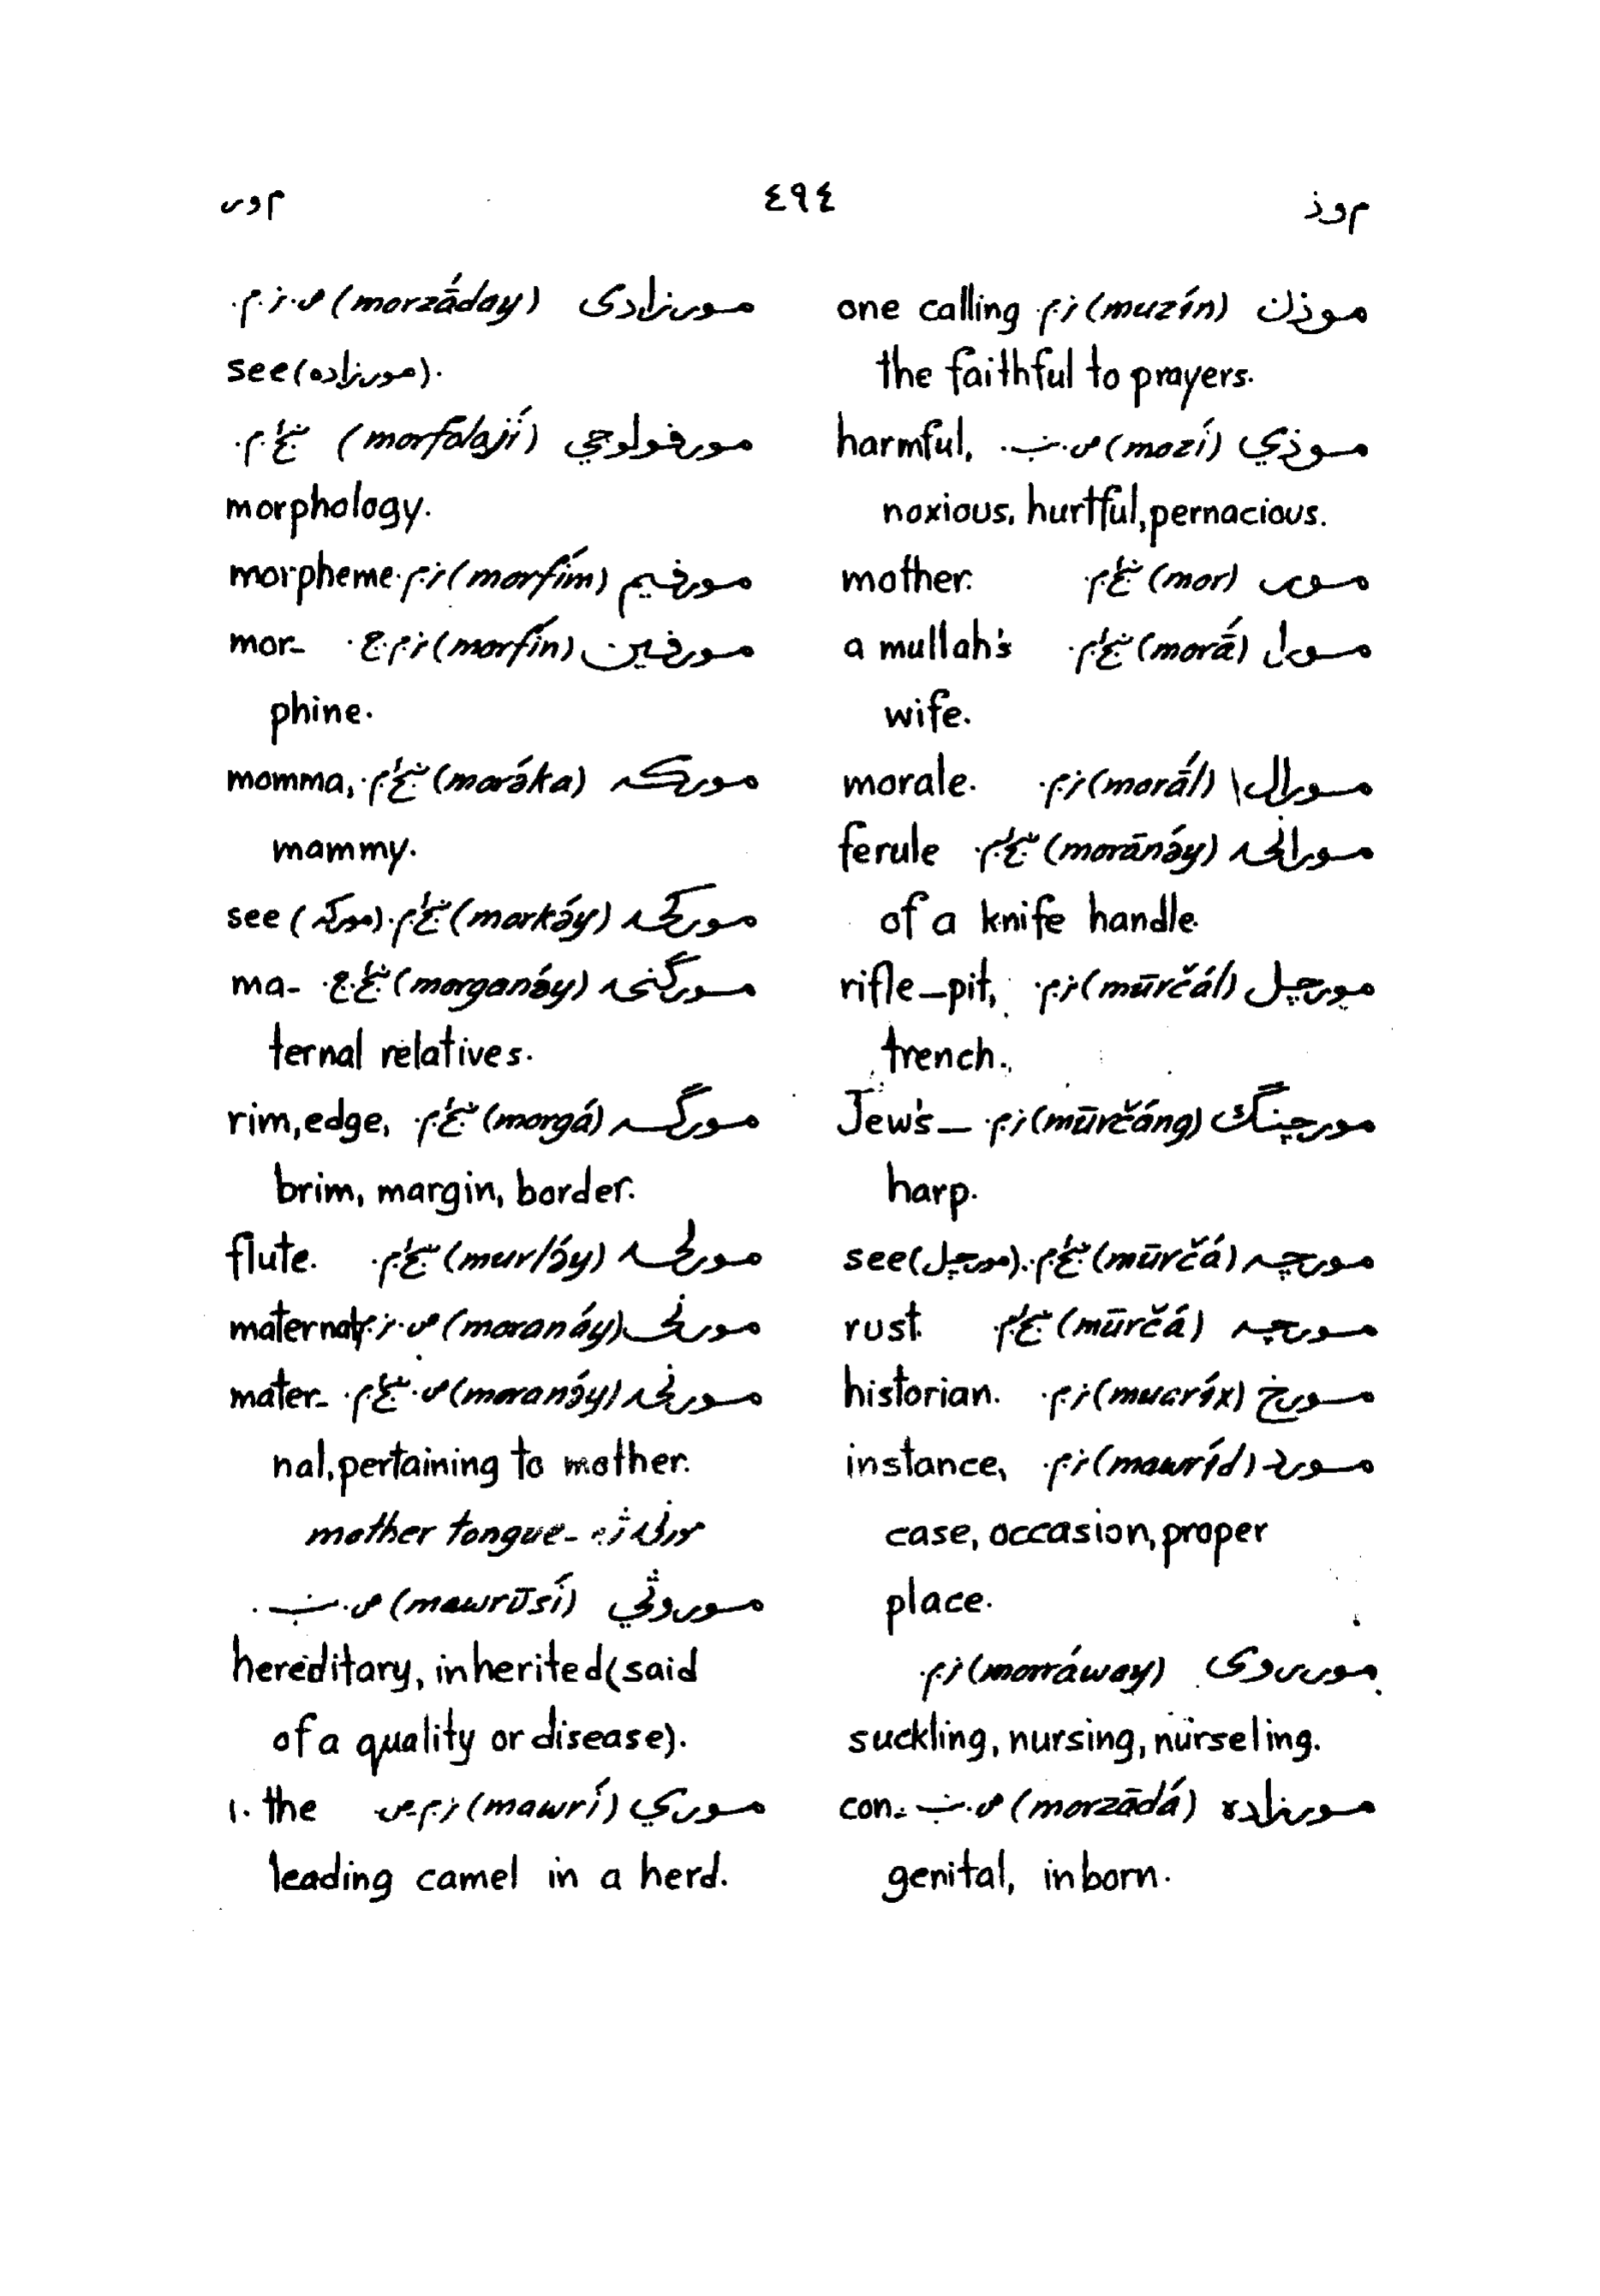 م و ذ ٤٩٤ م و ر
موذن (muzín) ن.م. one calling
the faithful to prayers.
موذي (mozí) ص.ب. harmful,
noxious, hurtful, pernacious.
مور (mor) mother.
مورا (morā́) a mullah's
wife.
مورال (morā́l) ن.م. morale.
مورانۍ (morānə́y) ferule
of a knife handle.
مورچل (mūrčál) ن.م. rifle-pit,
trench.
مورچنګ (mūrčáng) ن.م. Jew's-
harp.
مورچه (mūrčá) see (مورچل).
مورچه (mūrčá) rust.
مورخ (muaríx) ن.م. historian.
مورد (mawríd) ن.م. instance,
case, occasion, proper
place.
(morráway) ن.م.
suckling, nursing, nurseling.
مورزاده (morzādá) ص.ب. con-
genital, inborn.
مورزادی (morzā́day) ص.ن.م.
see (مورزاده).
مورفولوجي (morfolojí)
morphology.
مورفيم (morfím) ن.م. morpheme.
مورفين (morfín) ن.م.ج. mor-
phine.
مورکه (morə́ka) momma,
mammy.
مورکۍ (morkə́y) see (مورکه)
مورګنۍ (morganə́y) ma-
ternal relatives.
مورګه (morgá) rim, edge,
brim, margin, border.
مورلۍ (murlə́y) flute.
مورنی (moranáy) ص.ن.م. maternal.
مورنۍ (moranə́y) mater-
nal, pertaining to mother.
mother tongue-
موروثي (mawrūsí) ص.ب.
hereditary, inherited (said
of a quality or disease).
موري (mawrí) ن.م.ص. 1. the
leading camel in a herd.